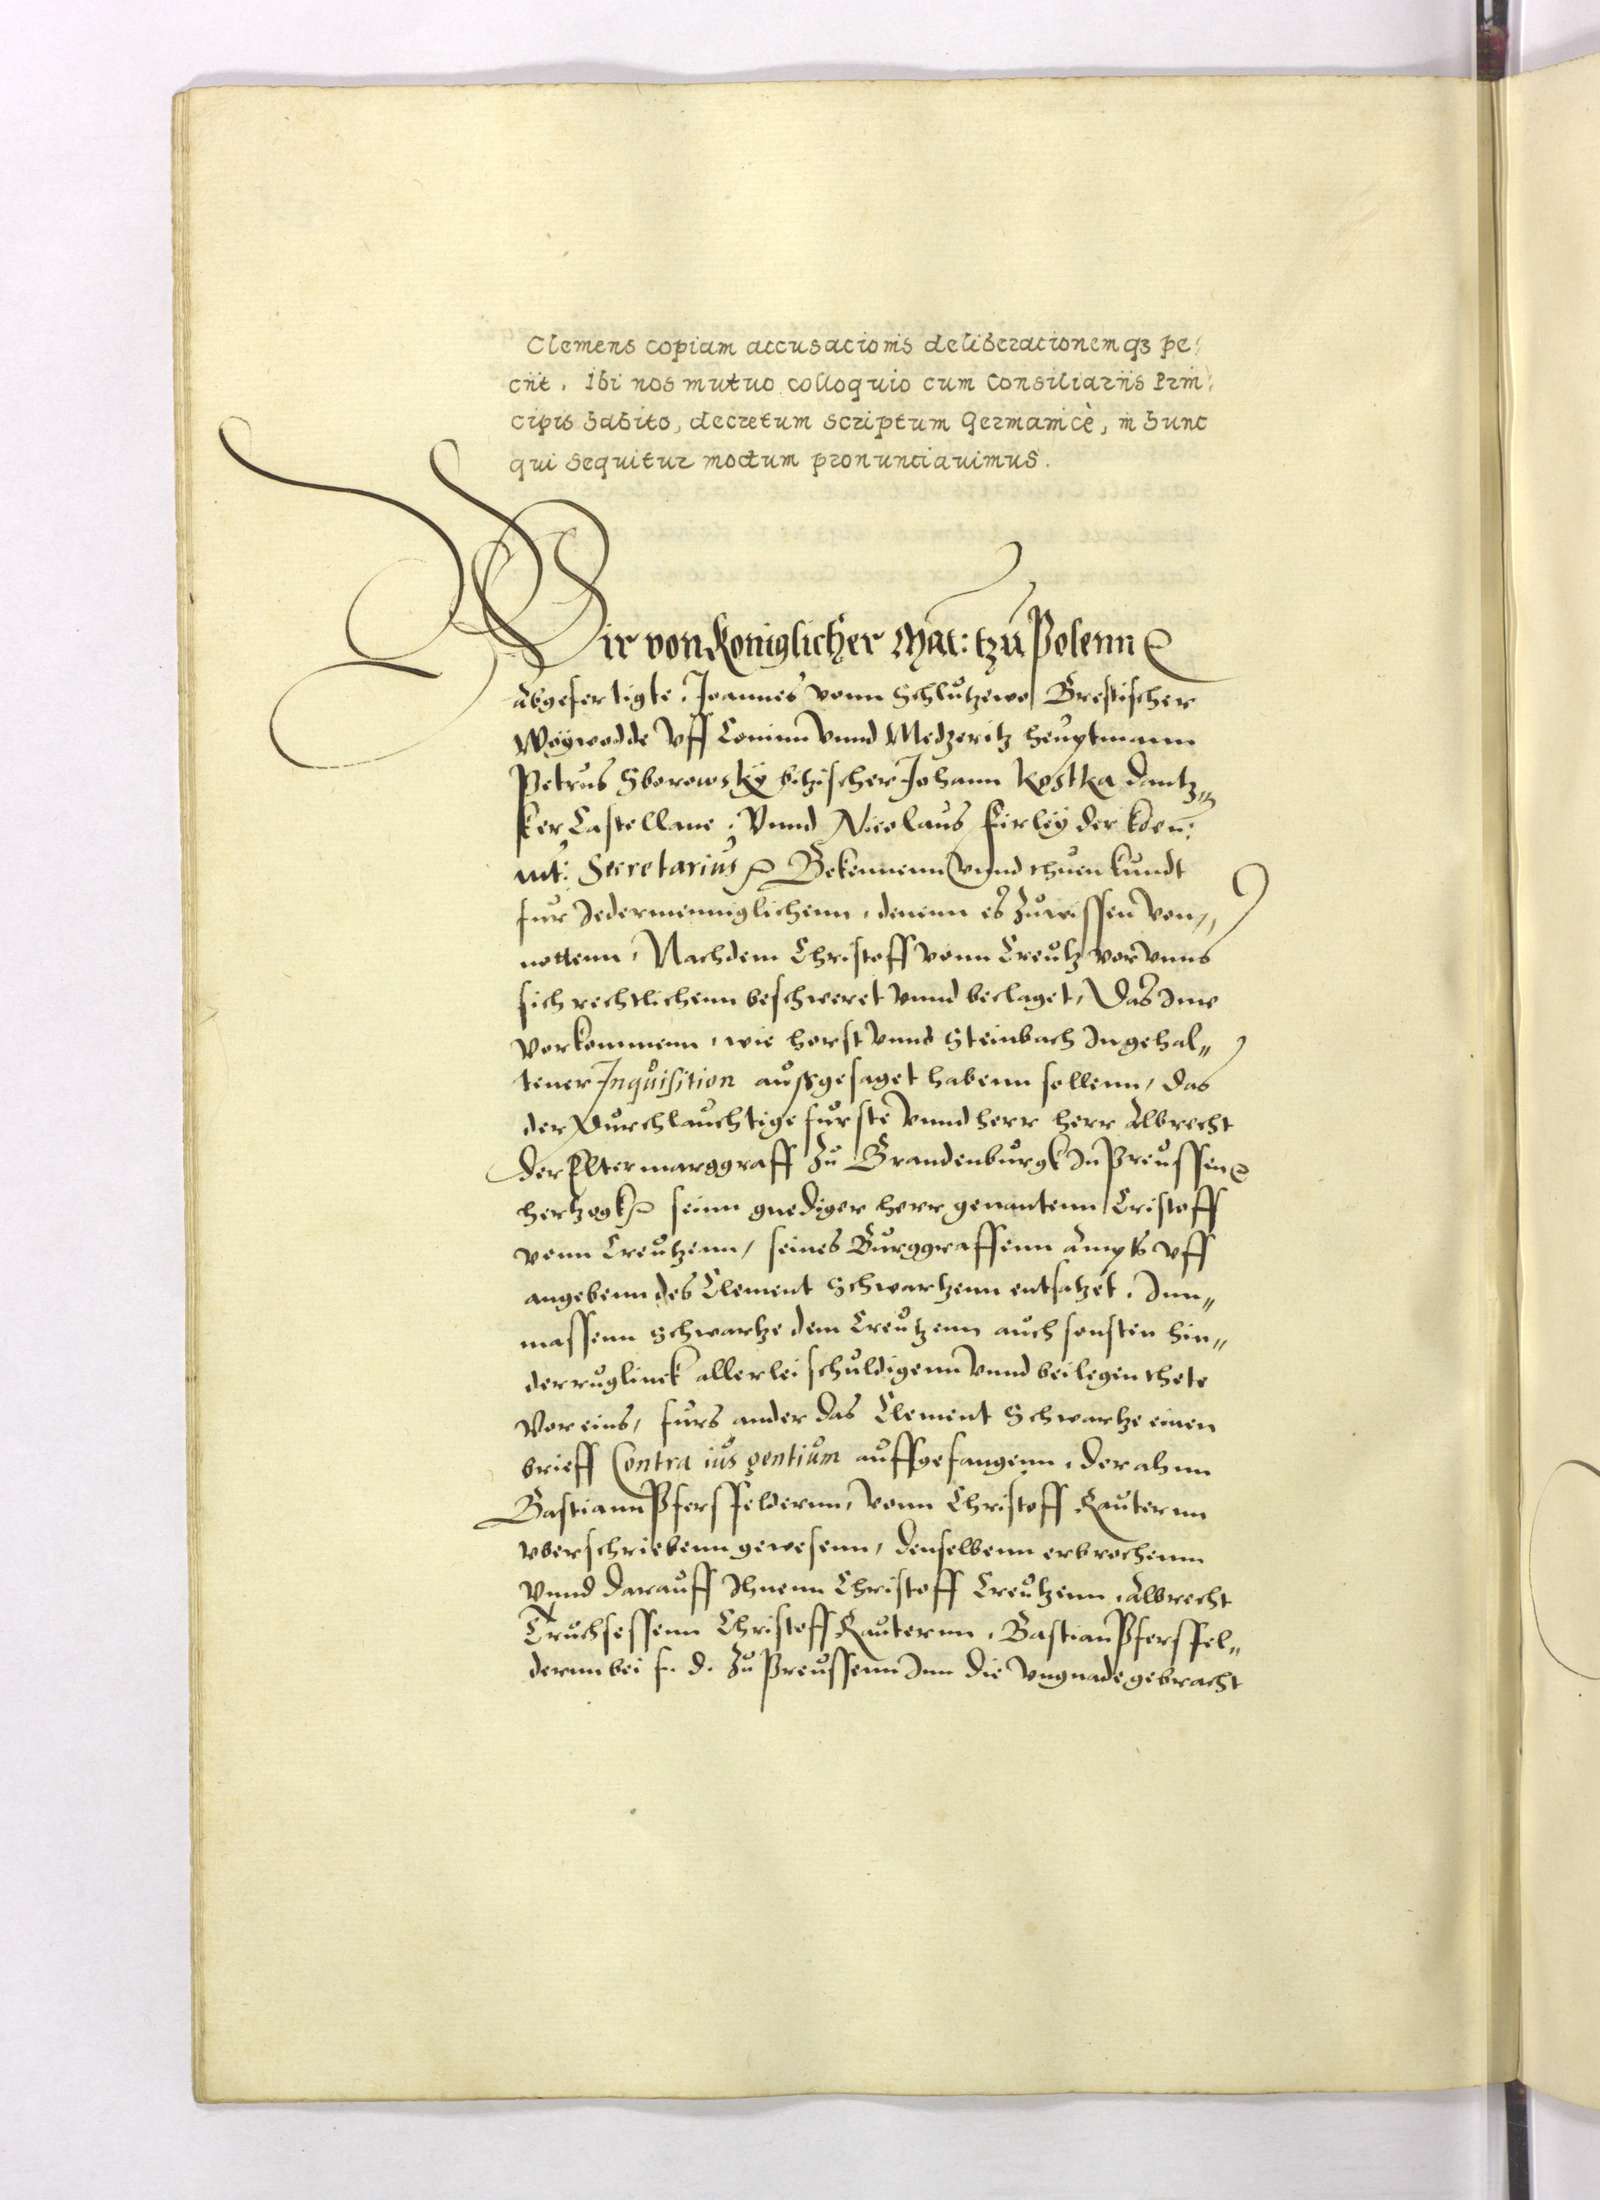 Clemens copiam accusacionis deliberacionem qȝ pe⸗
ciit. Ibi nos mutuo colloquio cum Consiliariis Prin⸗
cipis habito, decretum scriptum Germanicè, in hunc
qui sequitur modum pronunciauimus.
Wir von Koniglicher Mat: tzu Polenn
Abgefertigte. Joannes vonn Schlutzewo Brestischer
Woÿwodde vff Coninn vnnd Medzeritz heuptmann
Petrus Sborowskÿ bitzischer Johann Kostka dantz⸗
ker Castellane, Vnnd Nicolaus Firleÿ der koen:
mt: Secretarius Bekennenn vnnd thuen kundt
fur Jedermenniglichenn, denenn es zuwissen von⸗
nottenn, Nachdem Christoff vonn Creutz vor vnns
sich rechtlichenn beschweret vnnd beclaget, Das Jme
vorkommenn, wie horst vnnd Steinbach Jn gehal⸗
tener Inquisition aussgesaget habenn sollenn, das
der Durchlauchtige furste vnnd herr herr Albrecht
der Elter marggraff zu Brandenburgk Jn Preussen
hertzogk seinn gnediger herr genantenn Cristoff
vonn Creutzenn, seines Burggraffenn Ampts vff
angebenn des Clement Schwartzenn entsatzet. Jnn⸗
massenn Schwartze dem Creutzenn auch sonsten hin⸗
derruglinck allerlei schuldigenn vnnd beilegen thete
Vor eins, furs ander das Clement Schwartze einen
brieff Contra ius gentium auffgefangenn, der ahnn
Bastiann Pfersfeldernn, vonn Christoff Rauternn
vberschriebenn gewesenn, denselbenn erbrochenn
Vnnd darauff Jhnenn Christoff Creutzenn, Albrecht
Truchsessenn Christoff Rauternn, Bastian Pfersfel⸗
dernn bei f. d. zu Preussenn Jnn die vngnade gebracht